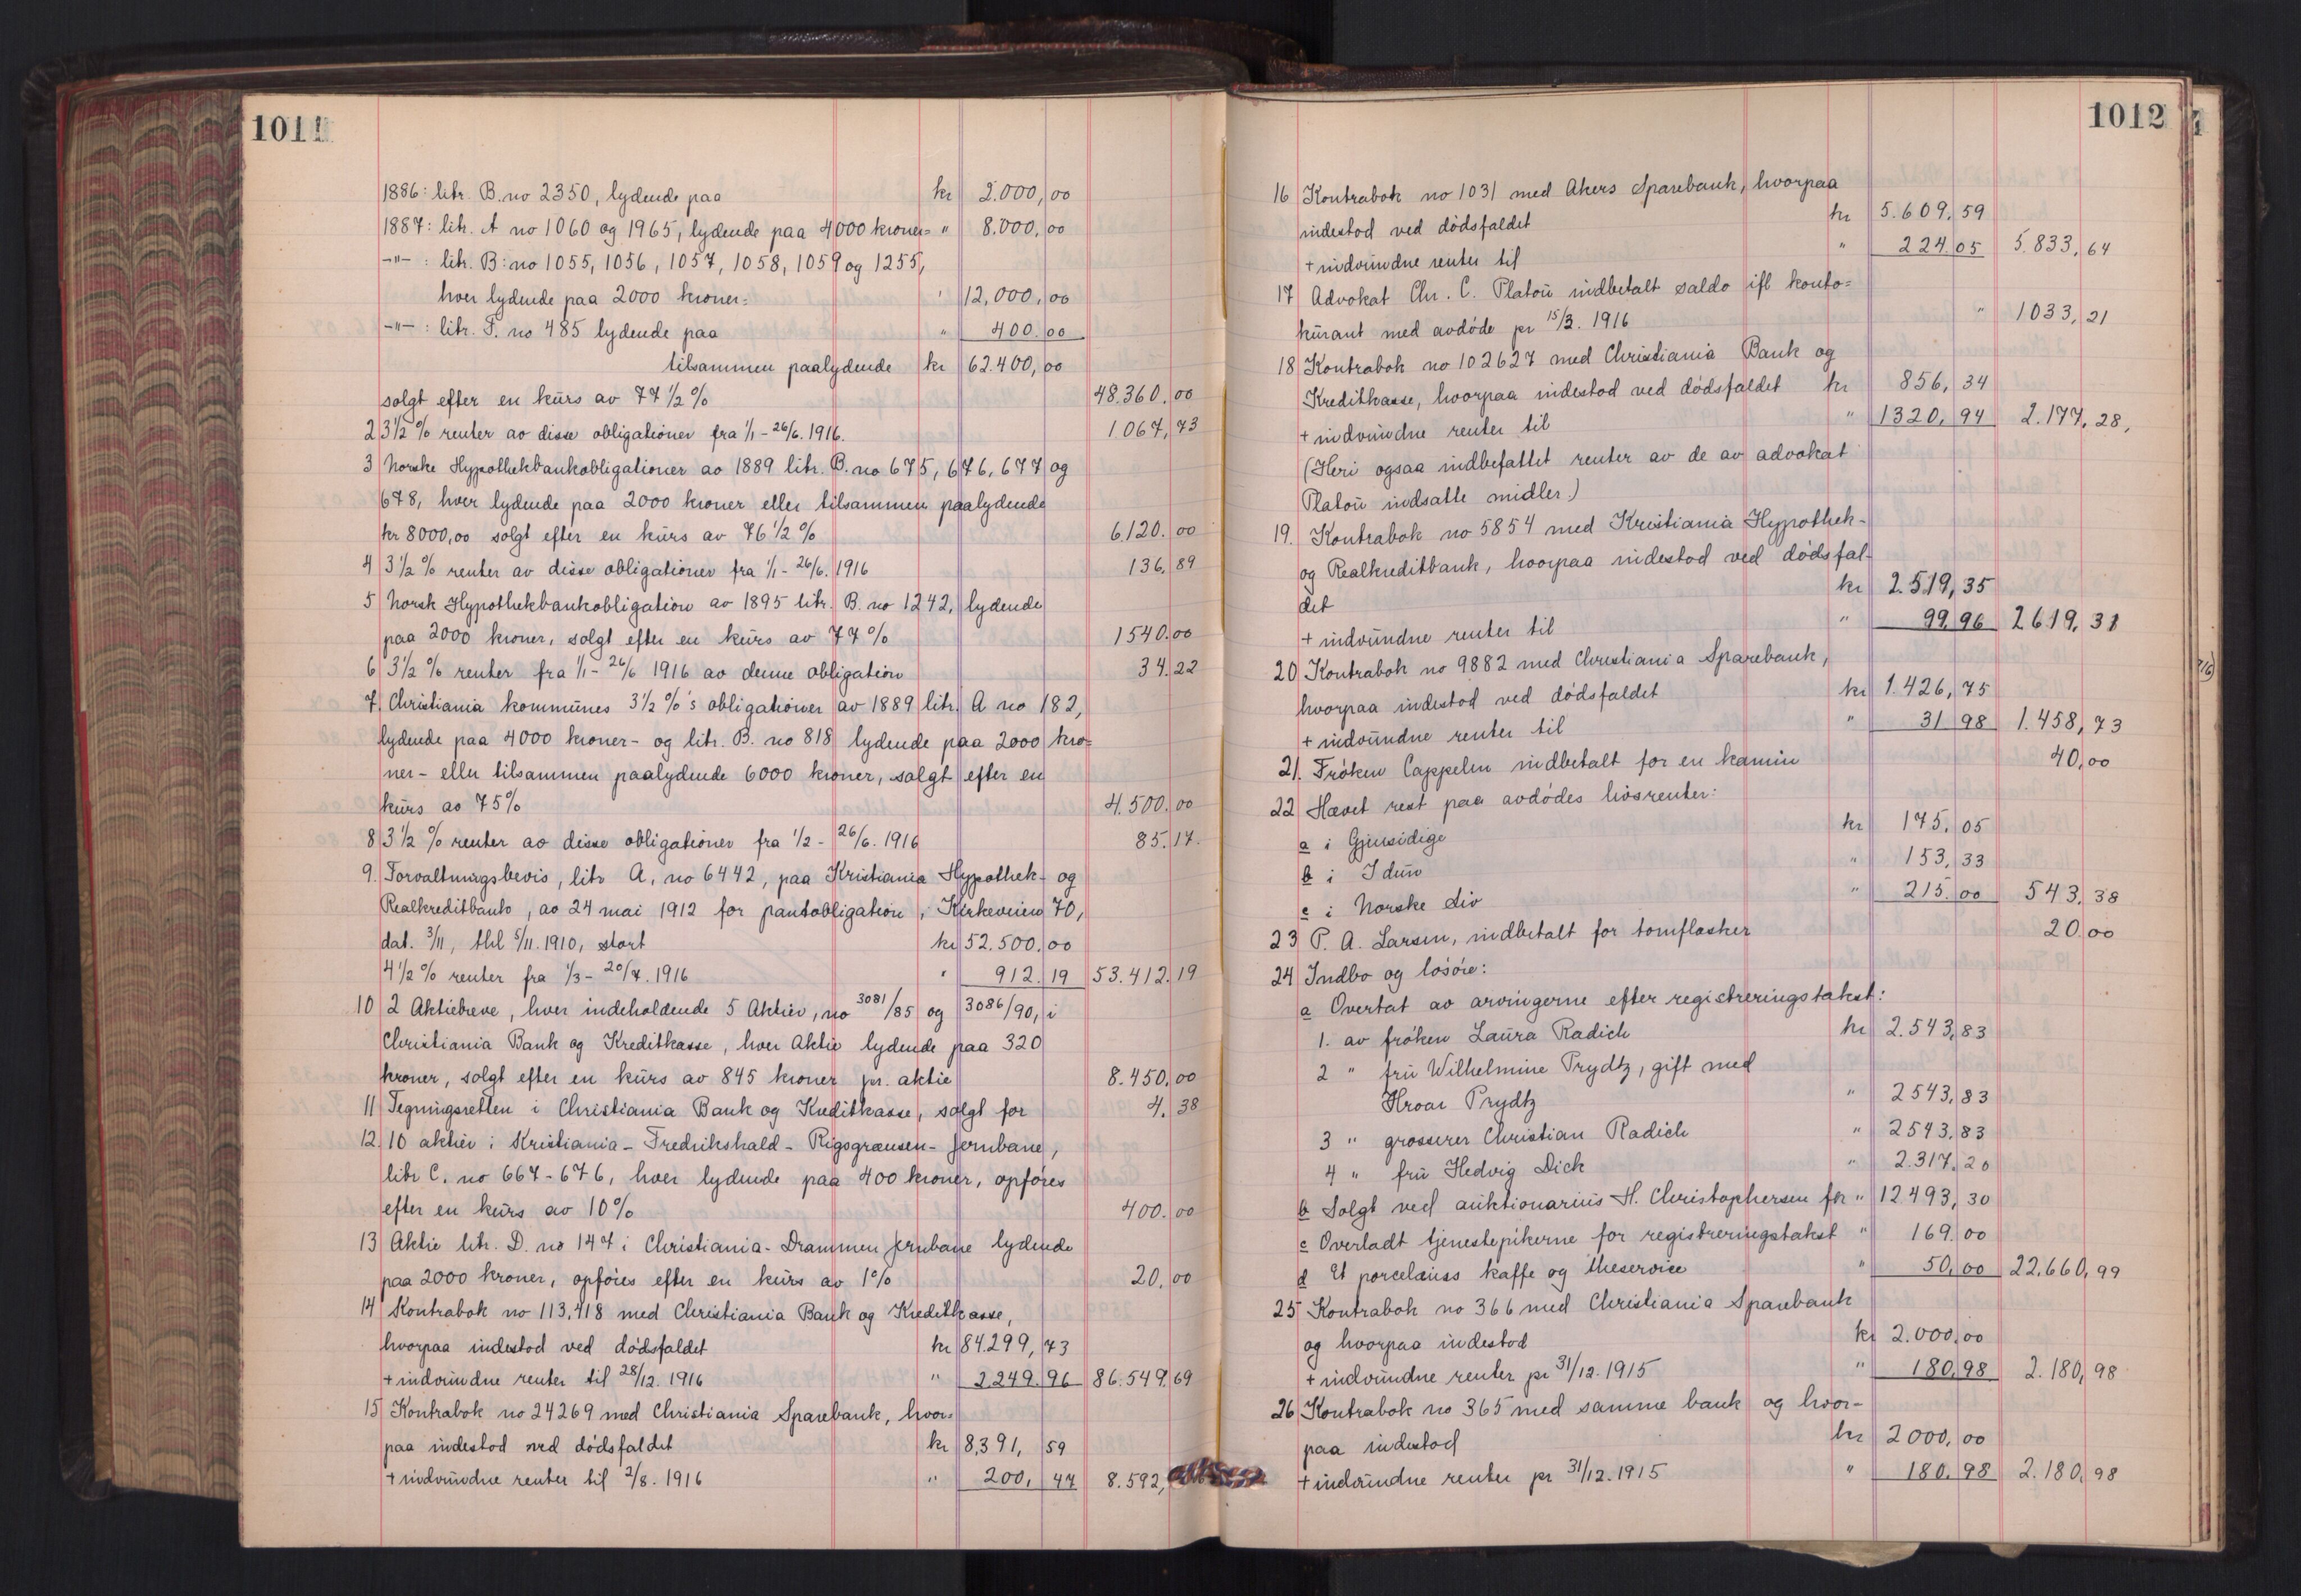 1011
1886: litr. B. no 2350, lydende paa kr 2.000,00
1887: litr. A no 1060 og 1965, lydende paa 4000 kroner= " 8.000,00
-"- : litr. B: no 1055, 1056, 1057, 1058, 1059 og 1255,
hver lydende paa 2000 kroner= " 12,000,00
-"- : litr. F. no 485 lydende paa " 400.00
tilsammen paalydende kr 62.400,00
solgt efter en kurs av 77 1/2 % 48.360.00
2 3 1/2 % renter av disse obligationer fra 1/1 - 26/6. 1916. 1.067,73
3 Norske Hypothekbankobligationer av 1889 litr. B. no 675, 676, 677 og
678, hver lydende paa 2000 kroner eller tilsammen paalydende
kr 8000,00 solgt efter en kurs av 76 1/2 % 6.120.00
4 3 1/2 % renter av disse obligationer fra 1/1 - 26/6. 1916 136,89
5 Norsk Hypothekbankobligation av 1895 litr. B. no 1242, lydende
paa 2000 kroner, solgt efter en kurs av 77 % 1540.00
6 3 1/2 % renter fra 1/1 - 26/6 1916 av denne obligation 34.22
7. Christiania kommunes 3 1/2 %'s obligationer av 1889 litr. A no 182,
lydende paa 4000 kroner- og litr. B. no 818 lydende paa 2000 kro=
ner - eller tilsammen paalydende 6000 kroner, solgt efter en
kurs av 75% 4.500.00
8 3 1/2 % renter av disse obligationer fra 1/2 - 26/6. 1916 85.17.
9. Forvaltningsbevis, litr A, no 6442, paa Kristiania Hypothek- og
Realkreditbank, av 24 mai 1912 for pantobligation i Kirkeveien 70,
dat. 3/11, thl 5/11. 1910, stort kr 52.500.00
4 1/2 % renter fra 1/3 - 20/7. 1916 " 912.19 53.412.19
10 2 Aktiebreve, hver indeholdende 5 Aktier, no 3081/85 og 3086/90, i
Christiania Bank og Kreditkasse, hver Aktie lydende paa 320
kroner, solgt efter en kurs av 845 kroner pr. aktie 8.450,00
11 Tegningsretten i Christiania Bank og Kreditkasse, solgt for 4.38
12. 10 aktier i Kristiania - Fredrikshald - Rigsgrænsen - jernbane,
litr C. no 667-676, hver lydende paa 400 kroner, opføres
efter en kurs av 10% 400.00
13 Aktie litr. D. no 147 i Christiania - Drammen jernbane lydende
paa 2000 kroner, opføres efter en kurs av 1% 20.00
14 Kontrabok no 113.418 med Christiania Bank og Kreditkasse,
hvorpaa indestod ved dødsfaldet kr 84.299,73
+ indvundne renter til 28/12. 1916 " 2.249.96 86.549.69
15 Kontrabok no 24269 med Christiania Sparebank, hvor=
paa indestod ved dødsfaldet kr 8,391,59
+ indvundne renter til 2/8. 1916 " 200,47 8.592,
1012
16 Kontrabok no 1031 med Akers Sparebank, hvorpaa
indestod ved dødsfaldet kr 5.609,59
+ indvundne renter til " 224.05 5.833,64
17 Advokat Chr. C. Platou indbetalt saldo ifl konto=
kurant med avdøde pr 15/3. 1916 " 1033,21
18 Kontrabok no 102627 med Christiania Bank og
Kreditkasse, hvorpaa indestod ved dødsfaldet kr 856,34
+ indvundne renter til " 1320,94 2.177,28,
(Heri ogsaa indbefattet renter av de av advokat
Platou indsatte midler.)
19. Kontrabok no 5854 med Kristiania Hypothek-
og Realkreditbank, hvorpaa indestod ved dødsfal-
det kr 2.519,35
+ indvundne renter til " 99,96 2619,31
20 Kontrabok no 9882 med Christiania Sparebank,
hvorpaa indestod ved dødsfaldet kr 1.426,75
+ indvundne renter til " 31.98 1.458,73
21. Frøken Cappelen indbetalt for en kamin 40,00
22 Hævet rest paa avdødes livsrenter:
a i Gjensidige kr 175,05
b i Idun " 153,33
c i Norske Liv " 215.00 543,38
23 P. A. Larsen, indbetalt for tomflasker 20.00
24 Indbo og løsøre:
a Overtat av arvingerne efter registreringstakst:
1. av frøken Laura Radich kr 2.543,83
2 " fru Wilhelmine Prydtz, gift med
Hroar Prydtz " 2543,83
3 " grosserer Christian Radich " 2543.83
4 " fru Hedvig Dick " 2.317.20
b Solgt ved auktionarius H. Christophersen for " 12.493,30
c Overladt tjenestepikerne for registreringstakst " 169.00
d Et porcelæns kaffe og theservice " 50,00 22.660,99
25 Kontrabok no 366 med Christiania Sparebank
og hvorpaa indestod kr 2.000.00
+ indvundne renter pr 31/12. 1915 " 180,98 2.180,98
26 Kontrabok no 365 med samme bank og hvor-
paa indestod kr 2000,00
+ indvundne renter pr 31/12. 1915 " 180.98 2.180,98